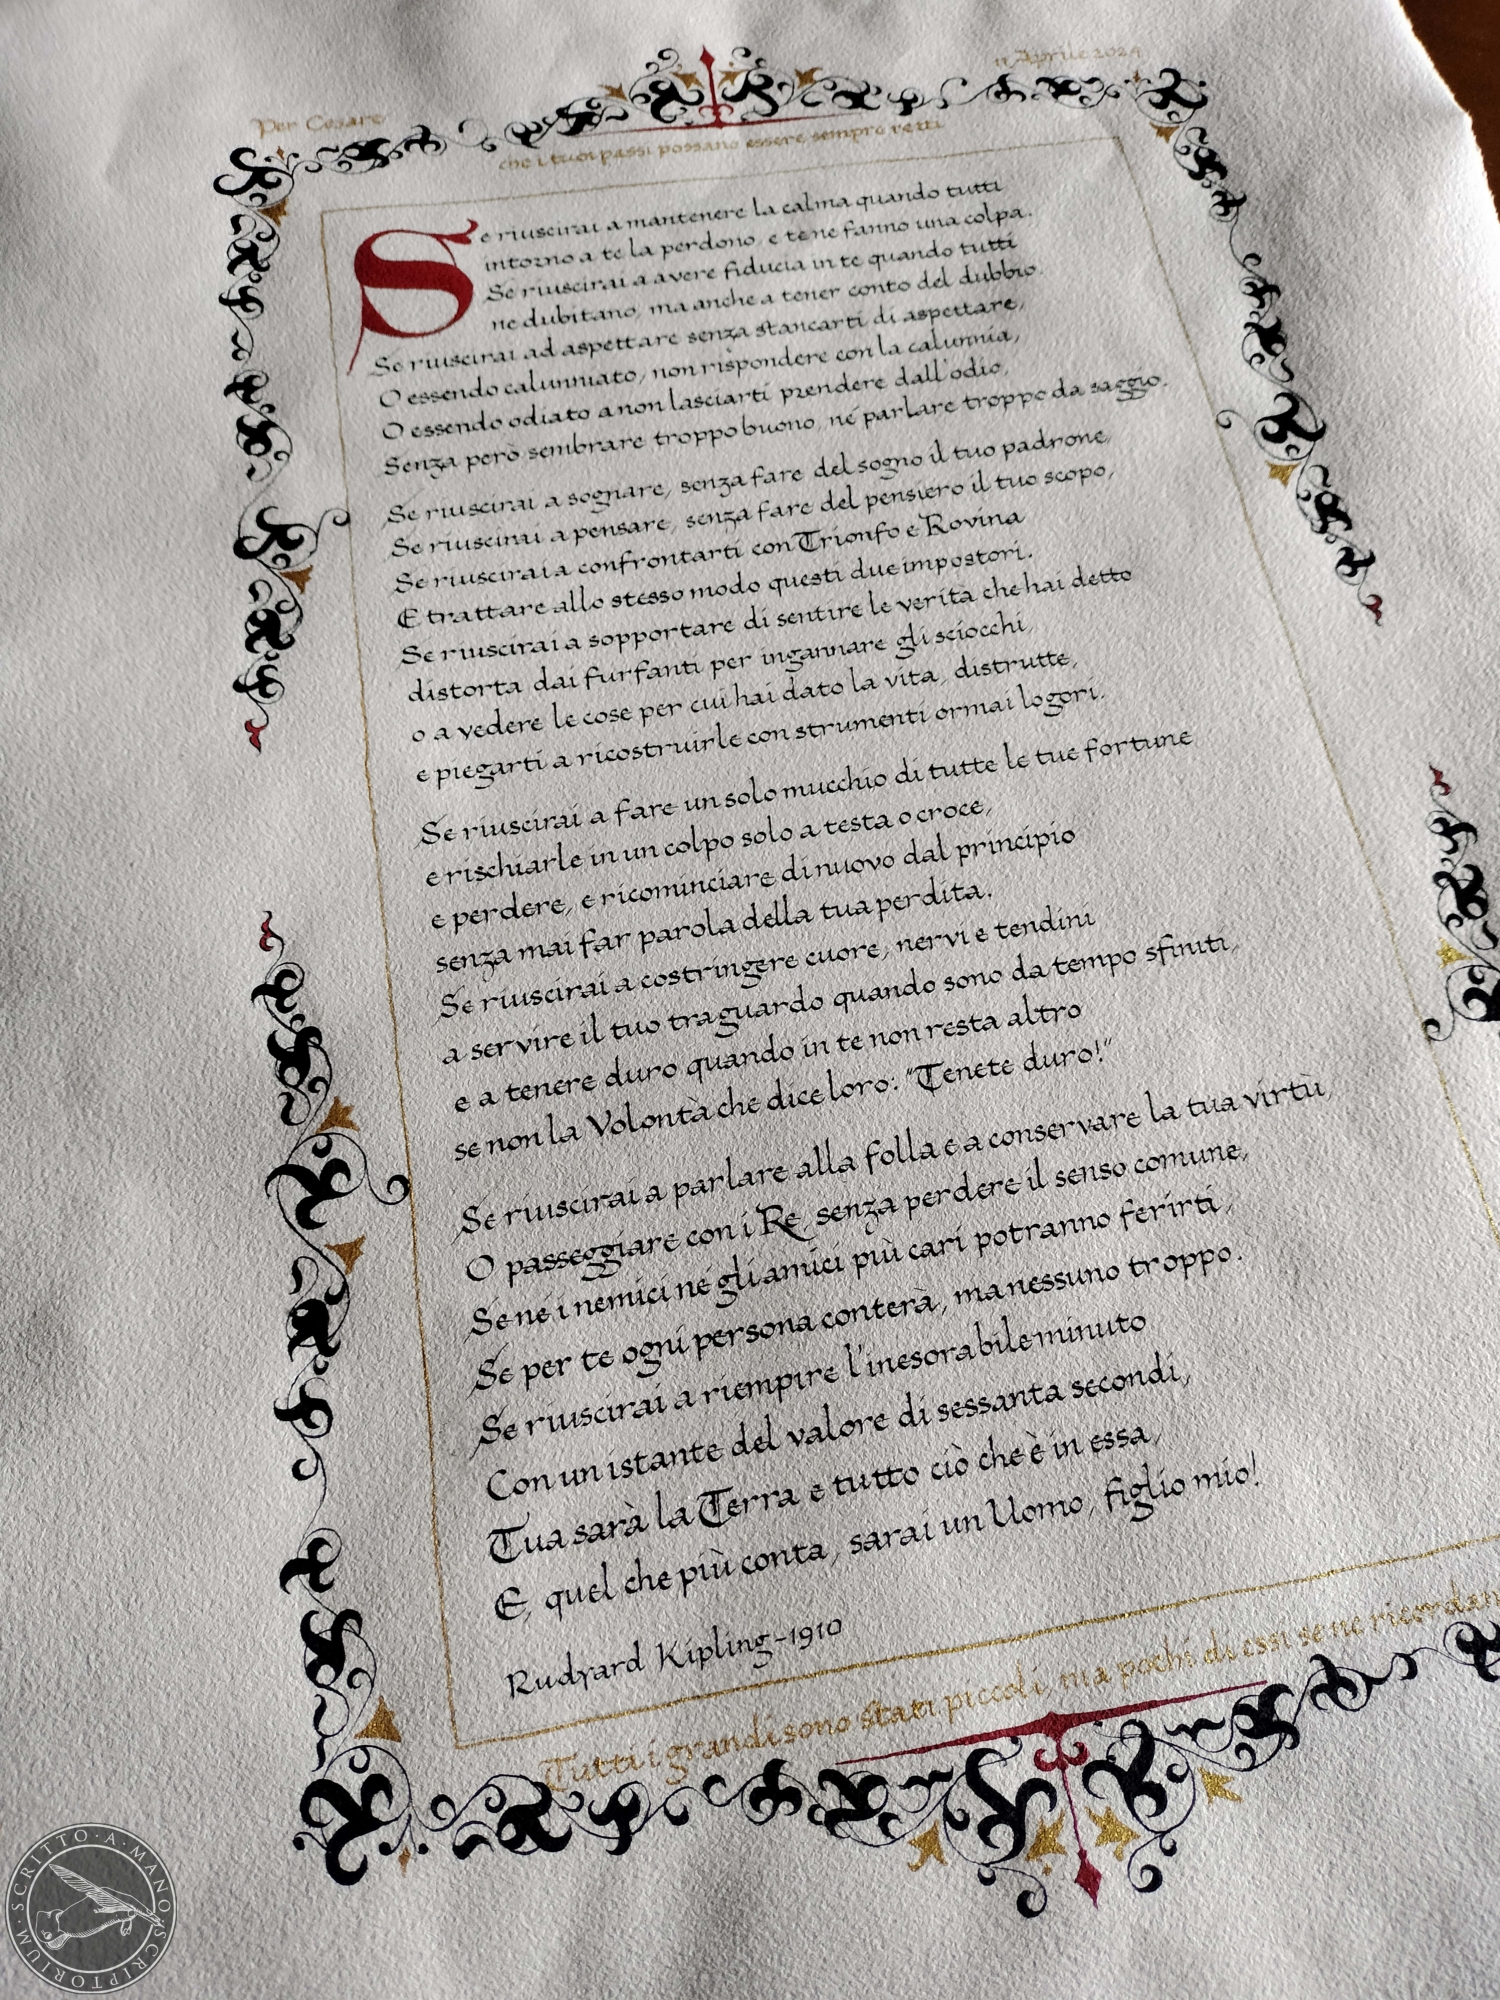 Per Cesare
11 Aprile 2024
che i tuoi passi possano essere sempre retti
Se riuscirai a mantenere la calma quando tutti
intorno a te la perdono, e te ne fanno una colpa.
Se riuscirai a avere fiducia in te quando tutti
ne dubitano, ma anche a tener conto del dubbio.
Se riuscirai ad aspettare senza stancarti di aspettare,
O essendo calunniato, non rispondere con la calunnia,
O essendo odiato a non lasciarti prendere dall'odio,
Senza però sembrare troppo buono, né parlare troppo da saggio.
Se riuscirai a sognare, senza fare del sogno il tuo padrone,
Se riuscirai a pensare, senza fare del pensiero il tuo scopo,
Se riuscirai a confrontarti con Trionfo e Rovina
E trattare allo stesso modo questi due impostori.
Se riuscirai a sopportare di sentire le verità che hai detto
distorta dai furfanti per ingannare gli sciocchi,
o a vedere le cose per cui hai dato la vita, distrutte,
e piegarti a ricostruirle con strumenti ormai logori.
Se riuscirai a fare un solo mucchio di tutte le tue fortune
e rischiarle in un colpo solo a testa o croce,
e perdere, e ricominciare di nuovo dal principio
senza mai far parola della tua perdita.
Se riuscirai a costringere cuore, nervi e tendini
a servire il tuo traguardo quando sono da tempo sfiniti,
e a tenere duro quando in te non resta altro
se non la Volontà che dice loro: "Tenete duro!"
Se riuscirai a parlare alla folla e a conservare la tua virtù,
O passeggiare con i Re, senza perdere il senso comune,
Se né i nemici né gli amici più cari potranno ferirti,
Se per te ogni persona conterà, ma nessuno troppo.
Se riuscirai a riempire l'inesorabile minuto
Con un istante del valore di sessanta secondi,
Tua sarà la Terra e tutto ciò che è in essa,
E, quel che più conta, sarai un Uomo, figlio mio!
Rudyard Kipling - 1910
Tutti i grandi sono stati piccoli, ma pochi di essi se ne ricordan
SCRITTO · A · MANO · SCRIPTORIUM ·